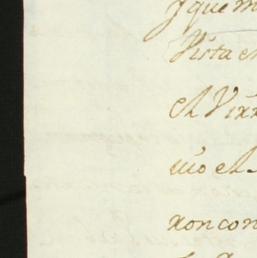 y que m
Vista e
el Virr
uio el
xon con